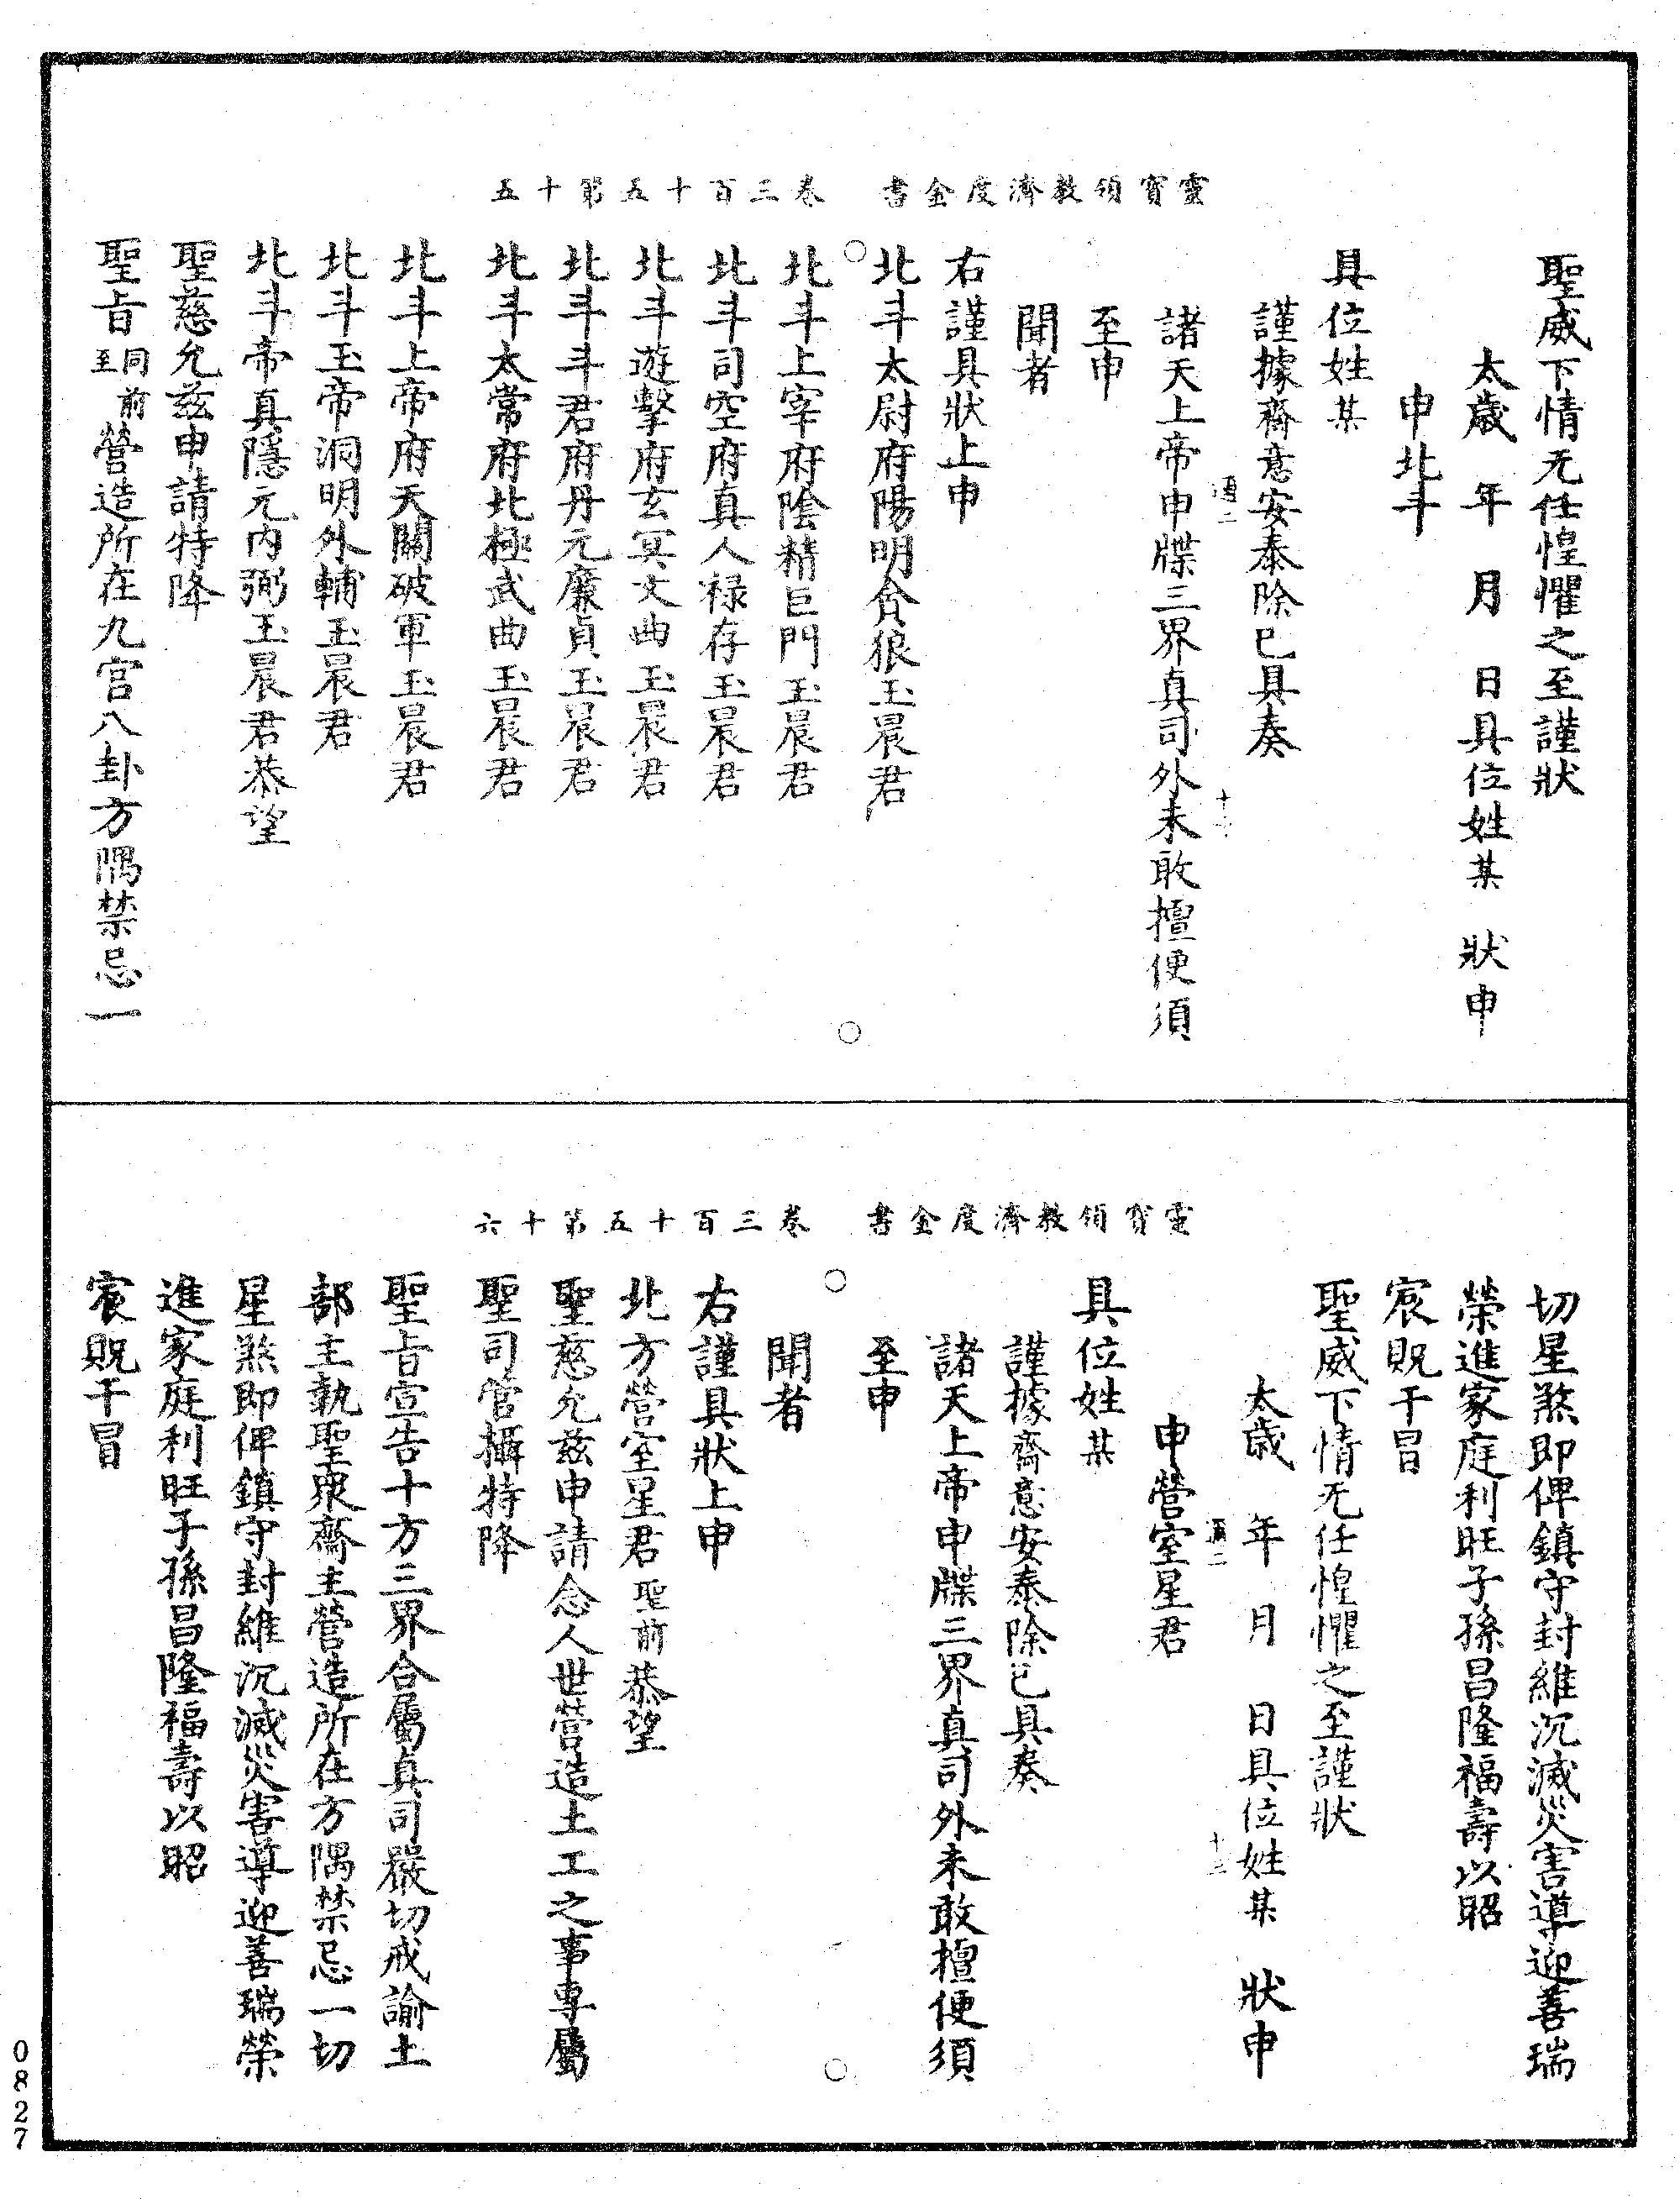 靈寶領教濟度金書　卷三百十五第十五
聖威下情无任惶懼之至謹狀
太歲　年　月　日具位姓某　狀申
申北斗
具位姓某
謹據齋意安泰除已具奏
諸天上帝申申牒三界真司外未敢擅便須
至申
聞者
右謹具狀上申
北斗太尉府陽明貪狼玉晨君
北斗上宰府陰精巨門玉晨君
北斗司空府真人祿存玉晨君
北斗遊擊府玄冥文曲玉晨君
北斗斗君府丹元廉貞玉晨君
北斗太常府北極武曲玉晨君
北斗上帝府天關破軍玉晨君
北斗玉帝洞明外輔玉晨君
北斗帝真隱元內弼玉晨君恭望
聖慈允茲申請特降
聖旨同前至營造所在九宮八卦方隅禁忌一
靈寶領教濟度金書　卷三百十五第十六
切星煞即俾鎮守封維沉滅災害導迎善瑞
榮進家庭利旺子孫昌隆福壽以昭
宸貺干冒
聖威下情无任惶懼之至謹狀
太歲　年　月　日具位姓某　狀申
申營室星君
具位姓某
謹據齋意安泰除已具奏
諸天上帝申申牒三界真司外未敢擅便須
至申
聞者
右謹具狀上申
北方營室星君聖前恭望
聖慈允茲申請念人世營造土工之事專屬
聖司管攝特降
聖旨宣告十方三界合屬真司嚴切戒諭土
部主執聖眾齋主營造所在方隅禁忌一切
星煞即俾鎮守封維沉滅災害導迎善瑞榮
進家庭利旺子孫昌隆福壽以昭
宸貺干冒
0827